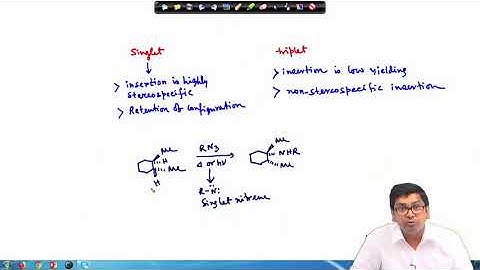 Singlet
triplet
> insertion is highly
stereospecific
> Retention of configuration
> insertion is low yielding
> non-stereospecific insertion
Me
H
Me
H
RN3
Δ or hν
R-N:
Singlet nitrene
Me
NHR
Me